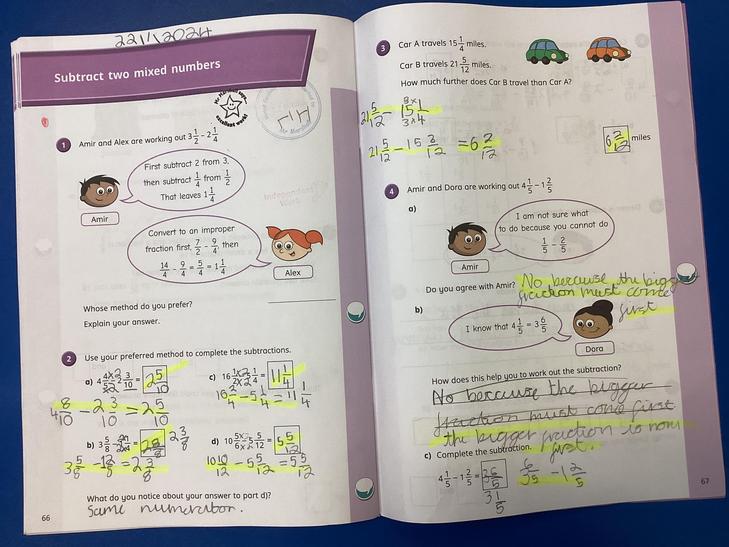 22/1/2024
Subtract two mixed numbers
excellent work!
1 Amir and Alex are working out 3 1/2 − 2 1/4
First subtract 2 from 3,
then subtract 1/4 from 1/2
That leaves 1 1/4
Amir
Independent
Work
Convert to an improper
fraction first, 7/2 − 9/4, then
14/4 − 9/4 = 5/4 = 1 1/4
Alex
Whose method do you prefer?
Explain your answer.
2 Use your preferred method to complete the subtractions.
a) 4 4×2/5×2 − 2 3/10 = 2 5/10
4 8/10 − 2 3/10 = 2 5/10
c) 16 1×2/2×2 5 1/4 = 11 1/4
16 2/4 − 5 1/4 = 11 1/4
b) 3 5/8 2 3/8
3 5/8 − 12/8 = 2 3/8
d) 10 5×2/6×2 5 5/12 = 5 5/12
10 10/12 − 5 5/12 = 5 5/12
What do you notice about your answer to part d)?
Same numerator.
66
3 Car A travels 15 1/4 miles.
Car B travels 21 5/12 miles.
How much further does Car B travel than Car A?
21 5/12 − 15 3×1/3×4
21 5/12 − 15 3/12 = 6 2/12
6 2/12 miles
4 Amir and Dora are working out 4 1/5 − 1 2/5
a)
I am not sure what
to do because you cannot do
1/5 − 2/5
Amir
Do you agree with Amir? No because the bigg
fraction must come
first
b)
I know that 4 1/5 = 3 6/5
Dora
How does this help you to work out the subtraction?
No because the bigger
fraction must come first
the bigger fraction is now
first.
c) Complete the subtraction.
4 1/5 − 1 2/5 =
3 1/5
− 1 2/5
67